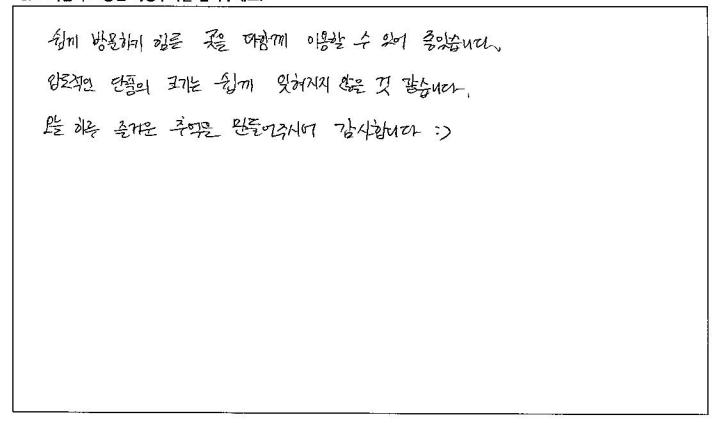 쉽게 방문하기 힘든 곳을 다함께 이용할 수 있어 좋았습니다.
압도적인 단풍의 크기는 쉽게 잊혀지지 않은 것 같습니다.
오늘 하루 즐거운 추억을 만들어주시어 감사합니다 :)